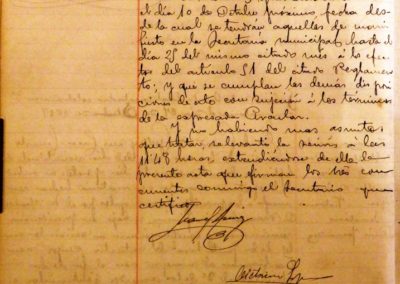 el dia 10 de Octubre próximo, fecha des-
de la cual se tendrán aquellas de mani-
fiesto en la Secretaria municipal, hasta el
dia 25 del mismo citado mes á los efec-
tos del articulo 51 del citado Reglamen-
to; y que se cumplan las demás
con sujeción á los términos
de la expresada Circular.
Y no habiendo mas asuntos
que tratar, se levantó la sesión á las
11'48 horas, extendiéndose de ella la
presente acta que firman los tres con-
currentes conmigo el Secretario que
certifico.